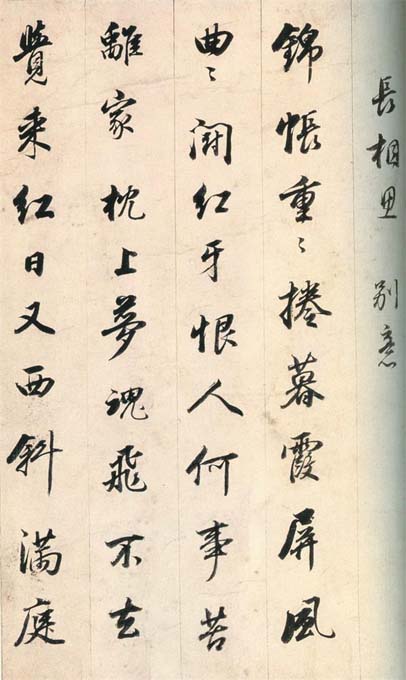 長相思 別意
錦帳重〻捲暮霞屏風
曲〻鬪紅牙恨人何事苦
離家枕上夢魂飛不去
覺來紅日又西斜滿庭